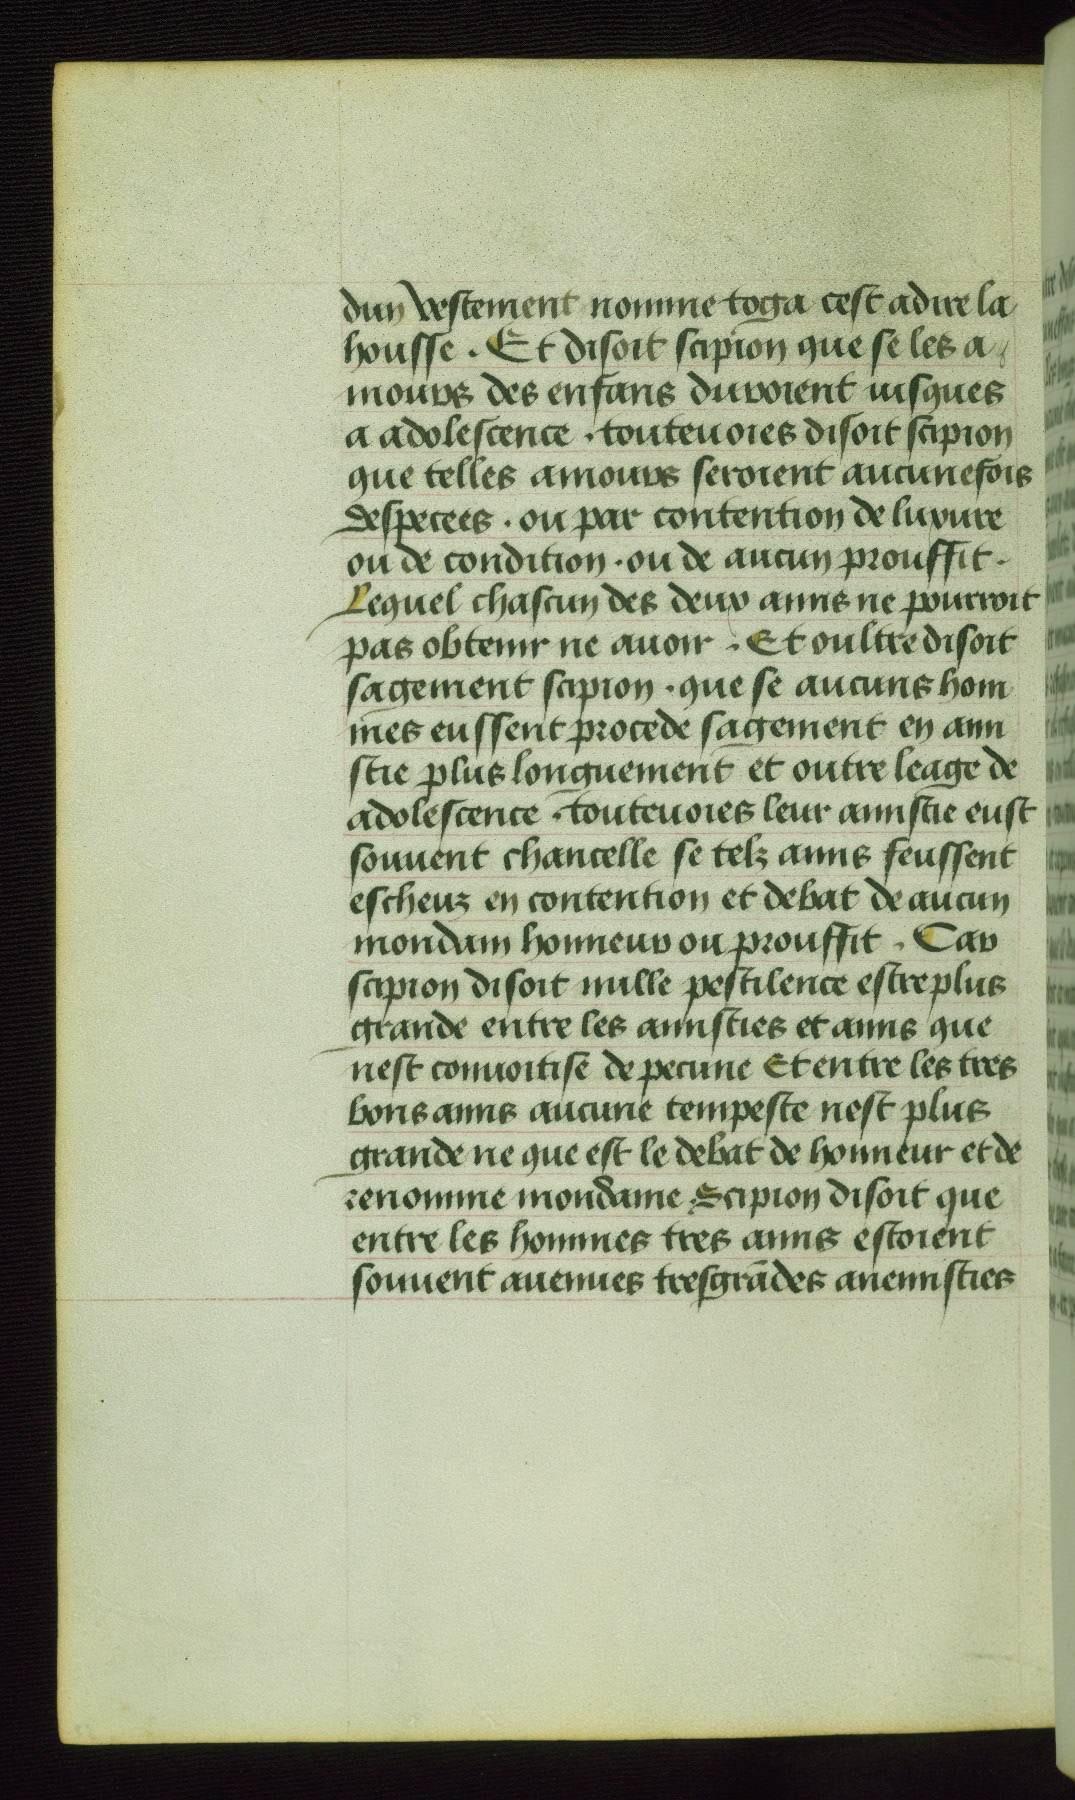 dun vestement nomme toga cest adire la
housse . Et disoit scipion que se les a
mours des enfans duroient iusques
a adolescence . toutevoies disoit scipion
que telles amours seroient aucunefois
despecees . ou par contention de luxure
ou de condition . ou de aucun prouffit .
Lequel chascun des deux amis ne pourroit
pas obtenir ne avoir . Et oultre disoit
sagement scipion . que se aucuns hom
mes eussent procede sagement en ami
stie plus longuement et outre leage de
adolescence . toutevoies leur amistie eust
souvent chancelle se telz amis feussent
escheuz en contention et debat de aucun
mondain honneur ou prouffit . Car
scipion disoit nulle pestilence estre plus
grande entre les amisties et amis que
nest convoitise de pecune Et entre les tres
bons amis aucune tempeste nest plus
grande ne que est le debat de honneur et de
renomme mondaine Scipion disoit que
entre les hommes tres amis estoient
souvent avenues tresgrādes anemisties